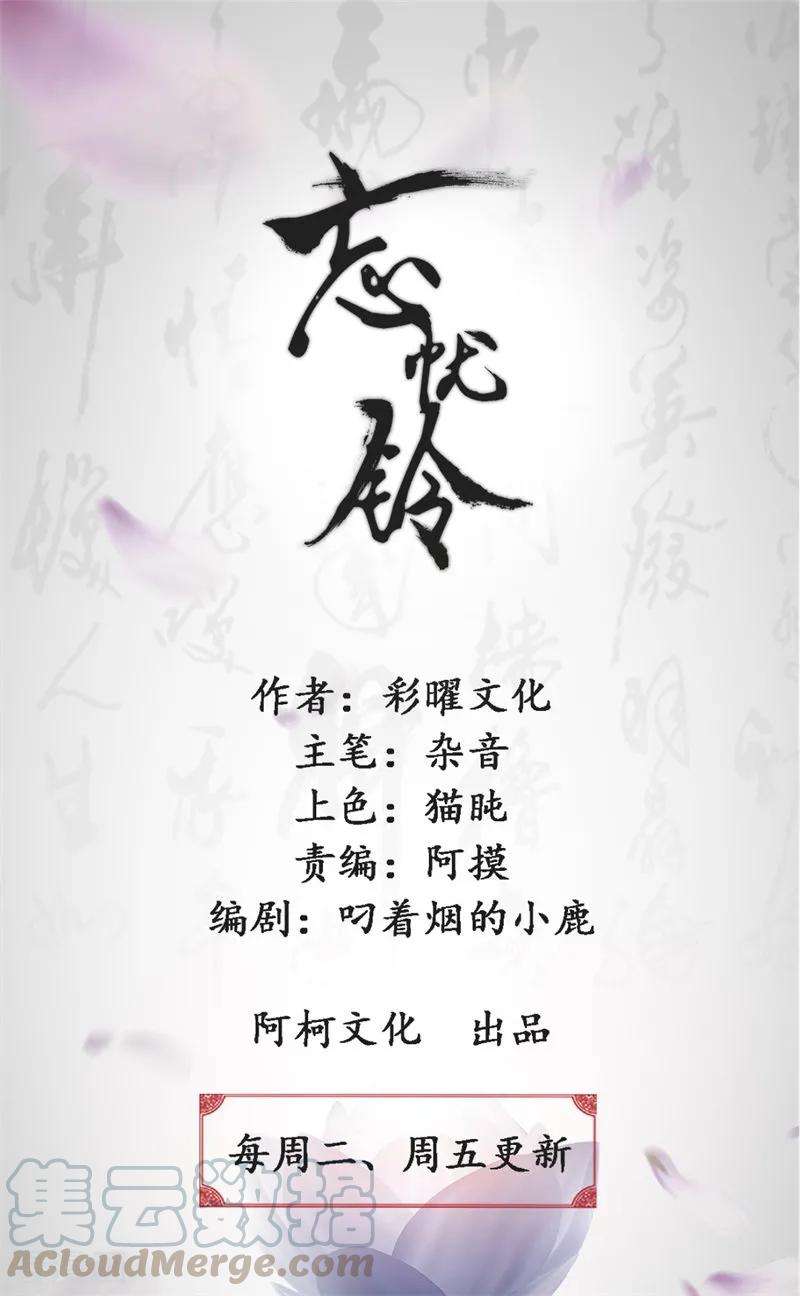 忘忧铃
作者：彩曜文化
主笔：杂音
上色：猫盹
责编：阿摸
编剧：叼着烟的小鹿
阿柯文化 出品
每周二、周五更新
集云数据
ACloudMerge.com